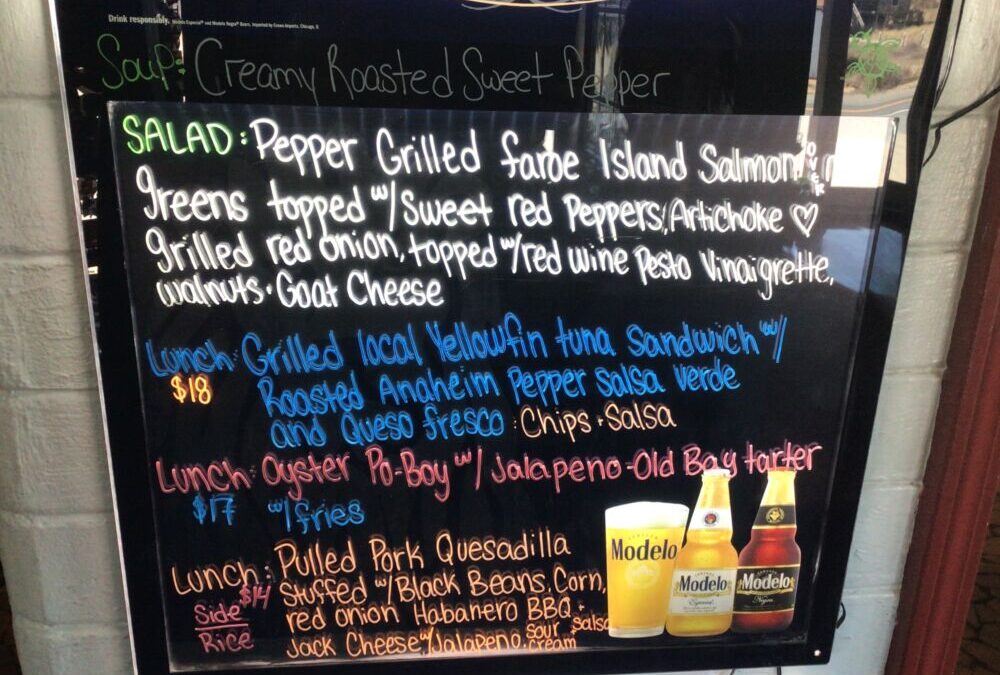 Drink responsibly. Modelo Especial® and Modelo Negra® Beers. Imported by Crown Imports, Chicago, IL
Soup: Creamy Roasted Sweet Pepper
SALAD: Pepper Grilled faroe Island Salmon over
greens topped w/ Sweet red Peppers, Artichoke ♡
grilled red onion, topped w/ red wine Pesto Vinaigrette,
walnuts + Goat Cheese
Lunch: Grilled local Yellowfin tuna Sandwich w/
$18 Roasted Anaheim Pepper salsa verde
and Queso fresco: Chips + Salsa
Lunch: Oyster Po-Boy w/ Jalapeno-Old Bay tarter
$17 w/ fries
Lunch: Pulled Pork Quesadilla
$14 Stuffed w/ Black Beans, Corn,
Side red onion Habanero BBQ + salsa
Rice Jack Cheese w/ Jalapeno. sour cream
Modelo
Modelo
Especial
Modelo
Negra